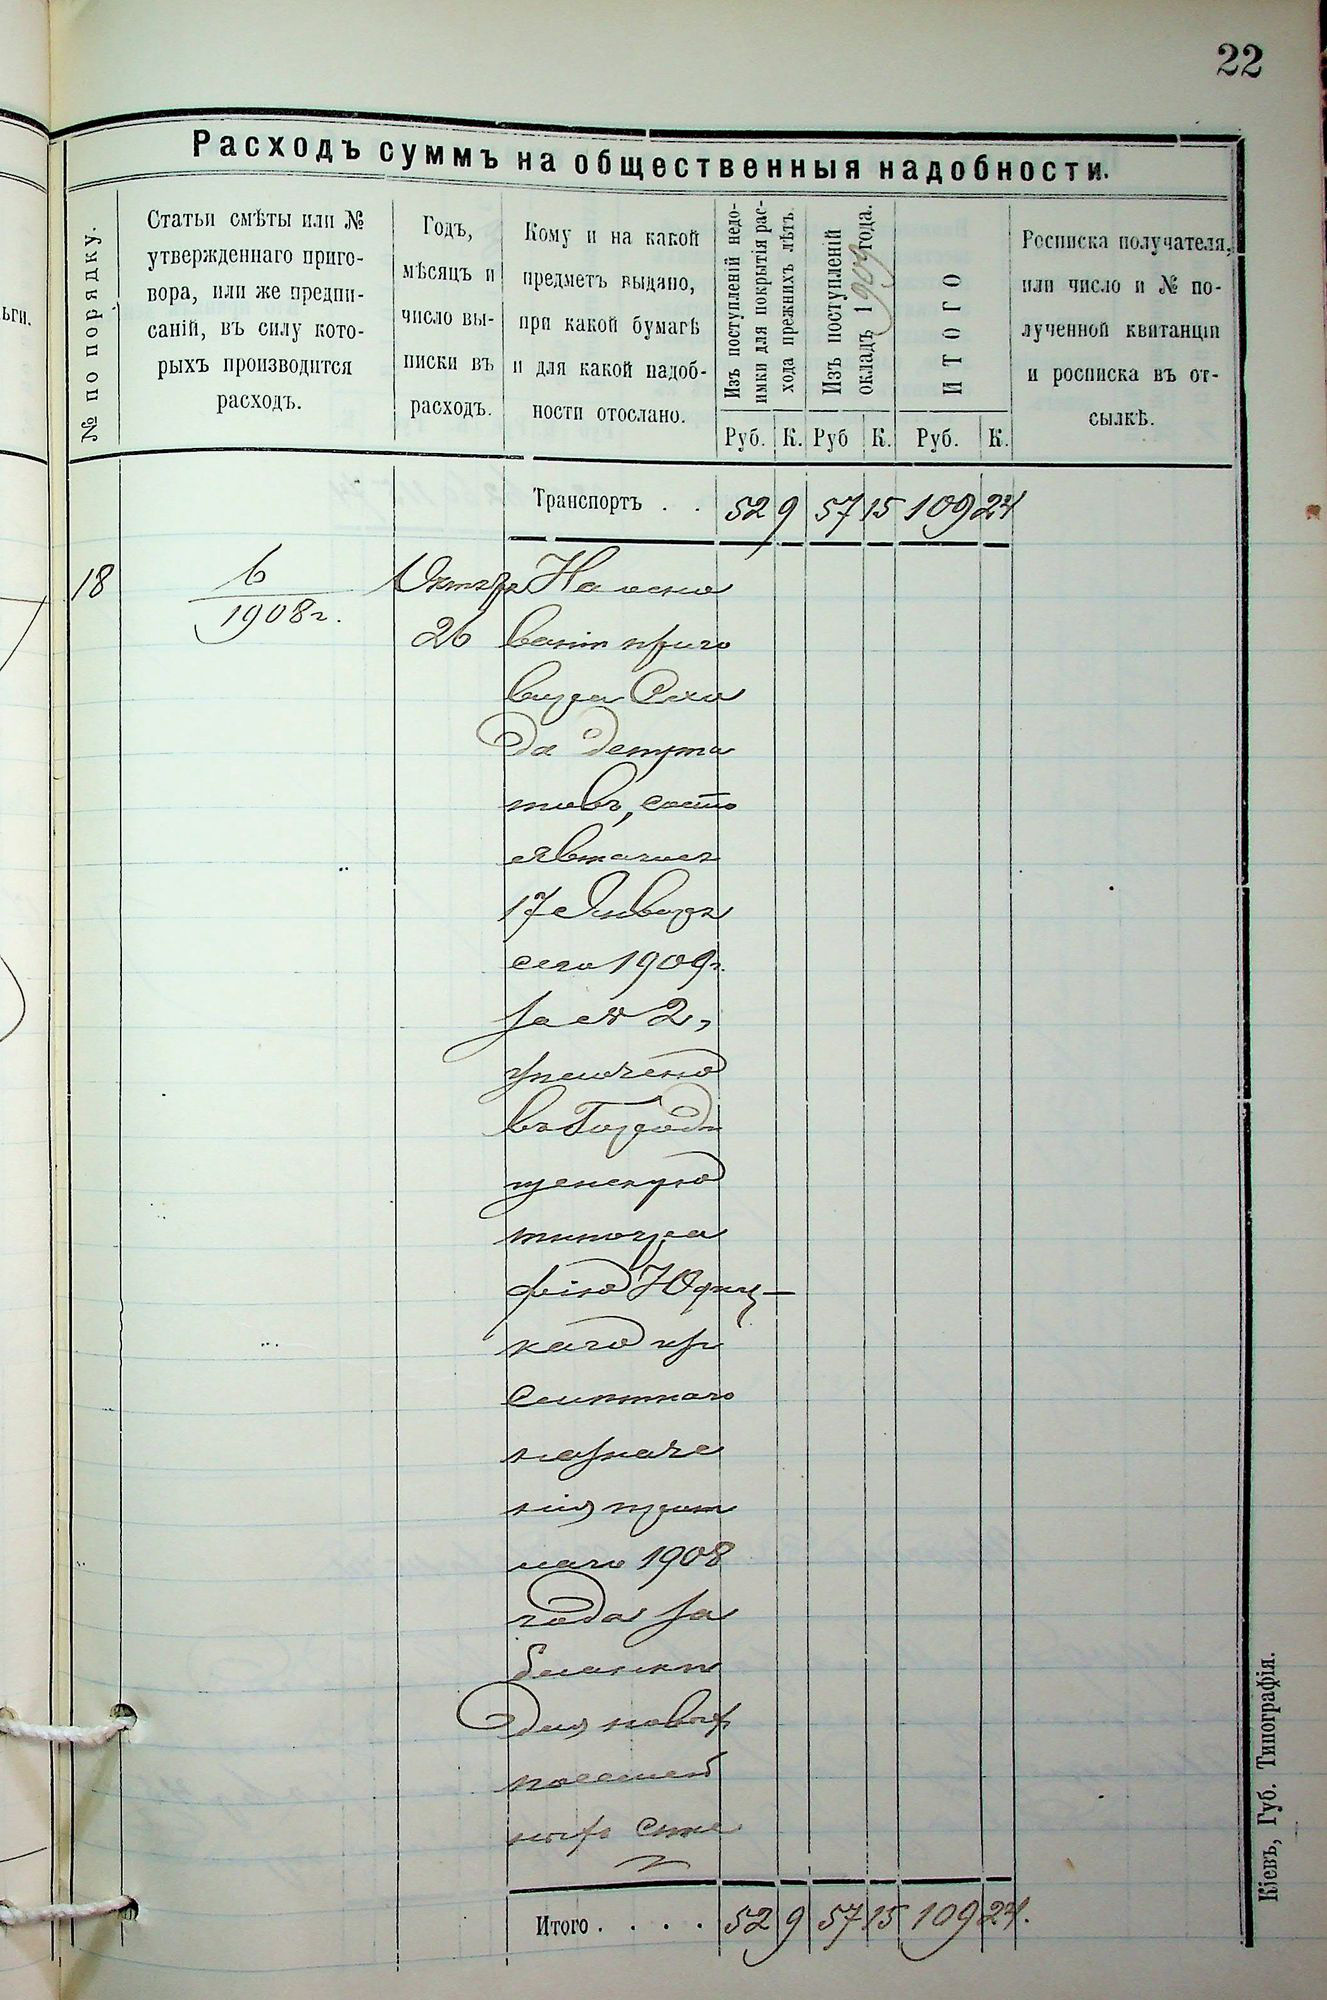 22
ьги.
Расходъ суммъ на общественныя надобности.
№ по порядку.
Статьи смѣты или №
утвержденнаго приго-
вора, или же предпи-
саній, въ силу кото-
рыхъ производится
расходъ.
Годъ,
мѣсяцъ и
число вы-
писки въ
расходъ.
Кому и на какой
предметъ выдано,
при какой бумагѣ
и для какой надоб-
ности отослано.
Изъ поступленій недо-
имки для покрытія рас-
хода прежнихъ лѣтъ.
Изъ поступленій
окладъ 1909 года.
ИТОГО
Росписка получателя,
или число и № по-
лученной квитанціи
и росписка въ от-
сылкѣ.
Руб. К. Руб К. Руб. К.
Транспортъ . . 52 9 57 15 109 24
18 6/1908 г. Октября На осно
26 ваніи приго
вора Схо
да депута
товъ, состо
явшагося
17 Января
сего 1909 г.
за № 2,
уплочено
въ Городи
щенскую
типогра
фію
каго
назначе
нія
1908
года за
бланки
для новых
посемей
ныхъ спи
Итого . . . . 52 9 57 15 109 24.
Кіевъ, Губ. Типографія.